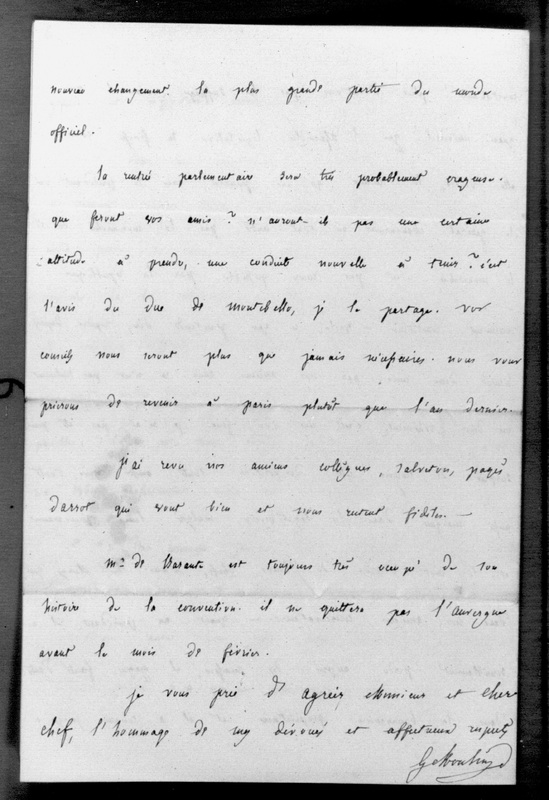 nouveau changement la plus grande partie du monde
officiel.
la rentré parlementaire sera très probablement orageuse.
que feront vos amis? n'auront-ils pas une certaine
attitude à prendre, une conduite nouvelle à tenir? c'est
l'avis du duc de montebello, je le partage. vos
conseils nous seront plus que jamais nécessaires. nous vous
prierons de revenir à paris plutôt que l'an dernier.
j'ai revu nos anciens collègues, salveton, pagès
darrot qui vont bien et nous restent fidèles. —
mr. de Barante est toujours très occupé de son
histoire de la convention. il ne quittera pas l'auvergne
avant le mois de février.
je vous prie d'agréer, Monsieur et cher
chef, l'hommage de mes dévoués et affectueux respects